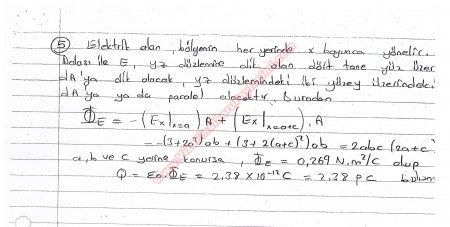 ⑤ Elektrik alan, bölgenin her yerinde x boyunca yönelir.
Dolası ile E, yz düzlemine dik olan dört tane yüz üzer
dA'ya dik olacak, yz düzlemindeki iki yüzey üzerindeki
dA'ya ya da paralel olacaktır. Buradan
Φ_E = -(E_x|_{x=a}) A + (E_x|_{x=a+c}).A
= -(3+2a²)ab + (3+2(a+c)²)ab = 2abc(2a+c)
a, b ve c yerine konursa, Φ_E = 0,269 N.m²/C olup
Q = ε₀.Φ_E = 2,38 x 10⁻¹² C = 2,38 pC bulunur